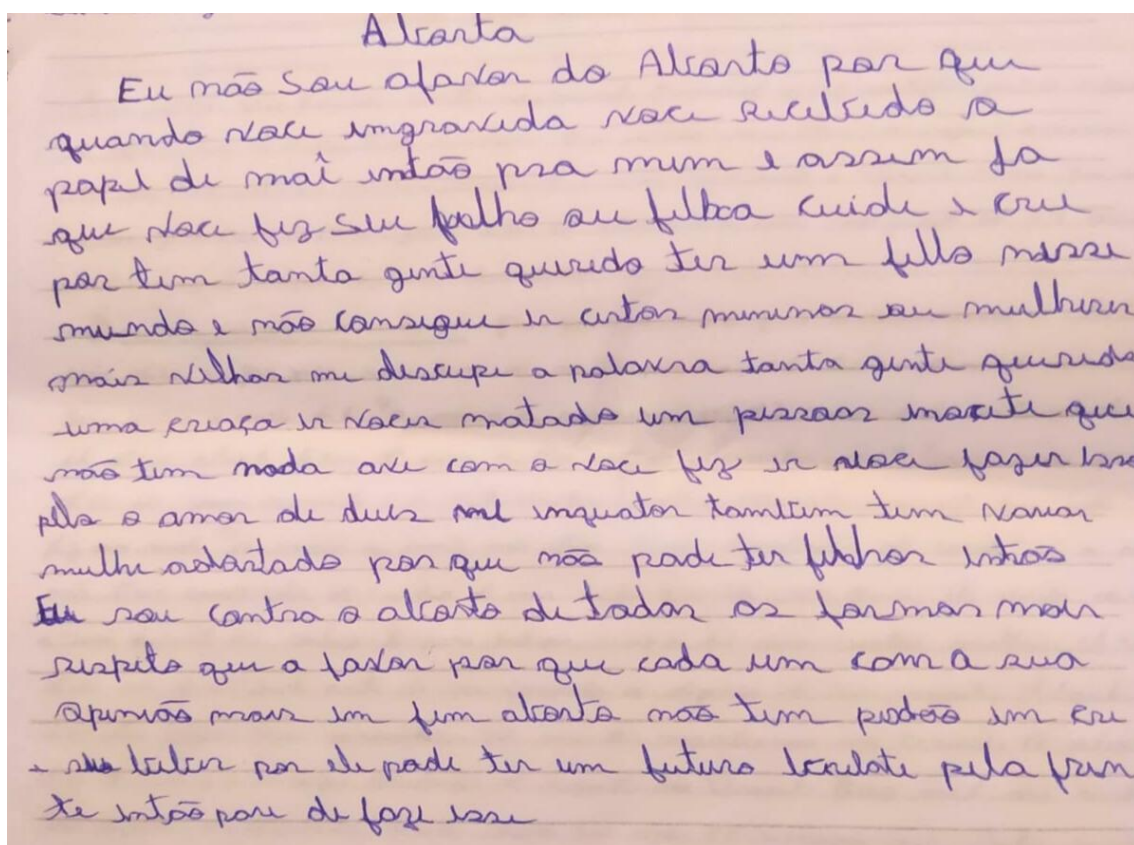 Alborto
Eu não sou afavor do Alborto por que
quando voce imgravida voce recebedo o
papel de maê intão pra mim e assim ja
que voce fez seu filho ou filhoa cuide e crie
por tem tanta gente queredo ter um fillo nesse
mundo e não consegue ir certas mininas ou mulheris
mais velhas me descupe a palavra tanta gente queredo
uma criaça ir voceis matado um pessoas inocete que
não tem nada ave com o voce fez ir voce fazer isso
pelo o amor de deus inquatos tambem tem varias
mulhe adoutado por que não pode ter filhos intão
Eu sou contra o alborto de todas as formas mais
respeito que a favor por que cada um com a sua
opinião mais im fim aborto não tem perdão im cri
bebes por ele pode ter um futuro briulate pela frin
te intão pare de faze isso